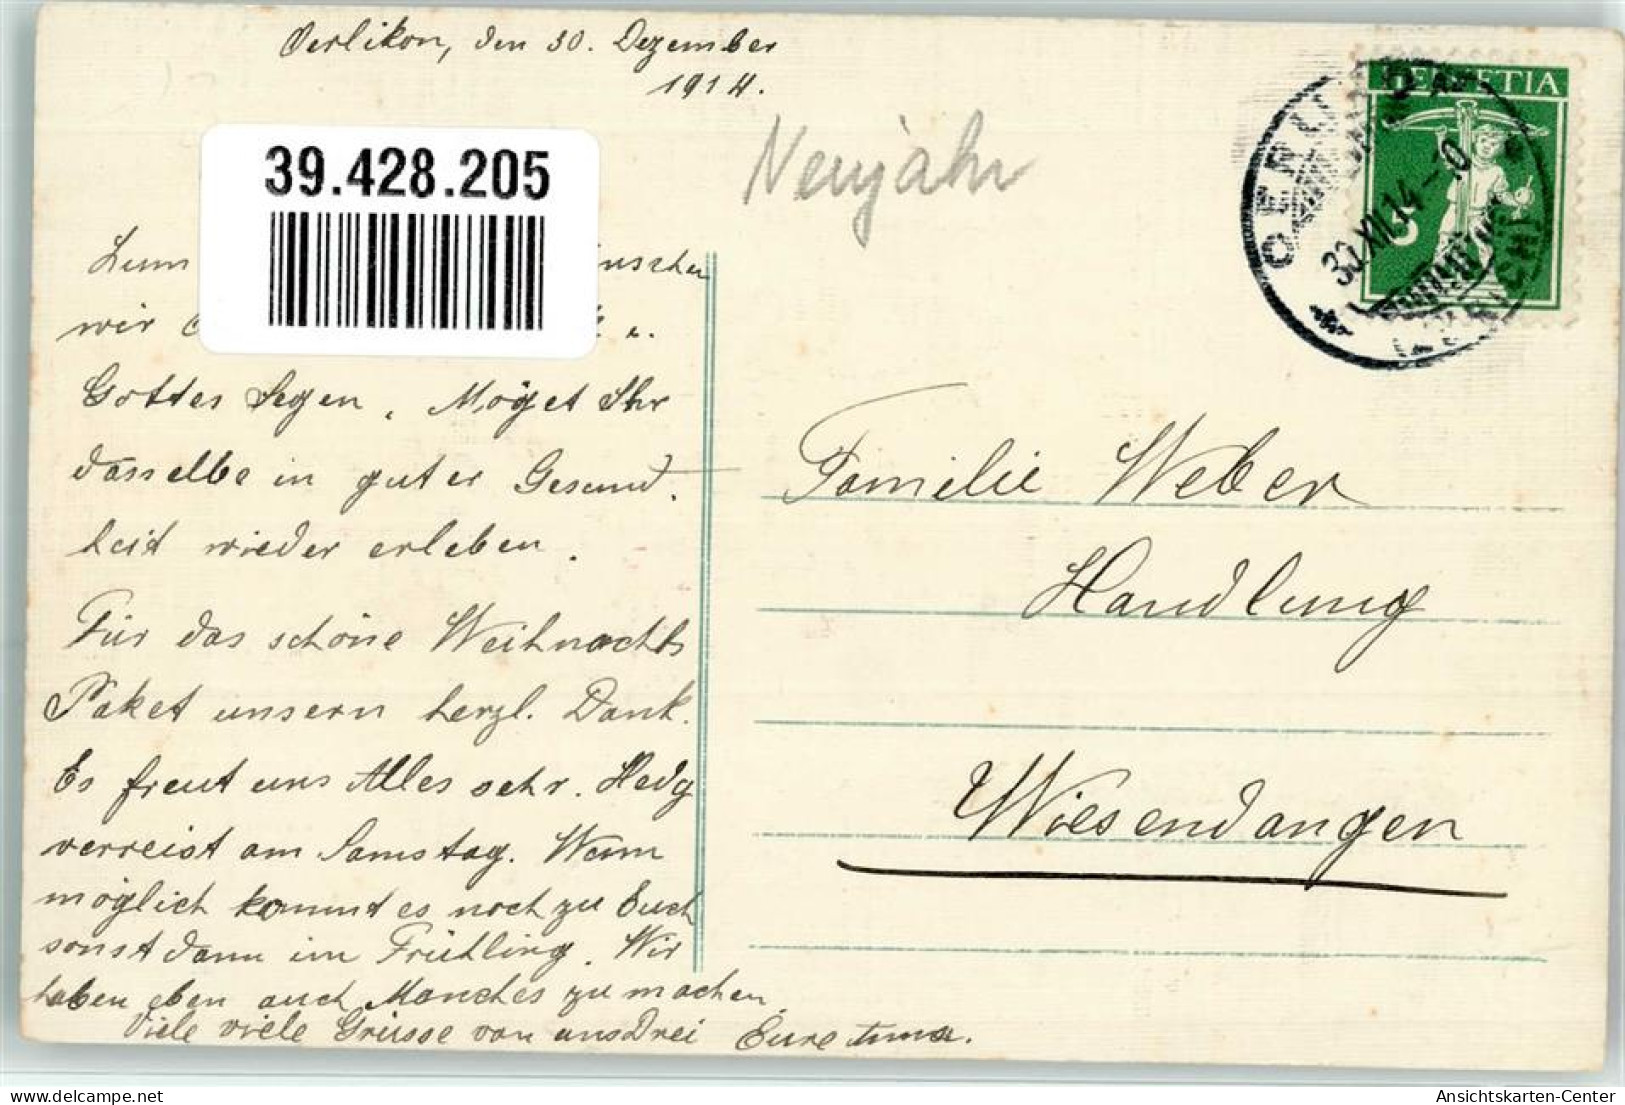 Oerlikon, den 30. Dezember
1914.
39.428.205
Neujahr
HELVETIA
30.XII.14-10
Zum
wir
u.
Gottes Segen. Möget Ihr
dasselbe in guter Gesund.
heit wieder erleben.
Für das schöne Weihnachts
Paket unsern herzl. Dank.
Es freut uns Alles sehr. Hedg
verreist am Samstag. Wenn
möglich kommt es noch zu Euch
sonst dann im Frühling. Wir
haben eben auch Manches zu machen.
Viele viele Grüsse von uns Drei Eure
Familie Weber
Handlung
Wiesendangen
Ansichtskarten-Center